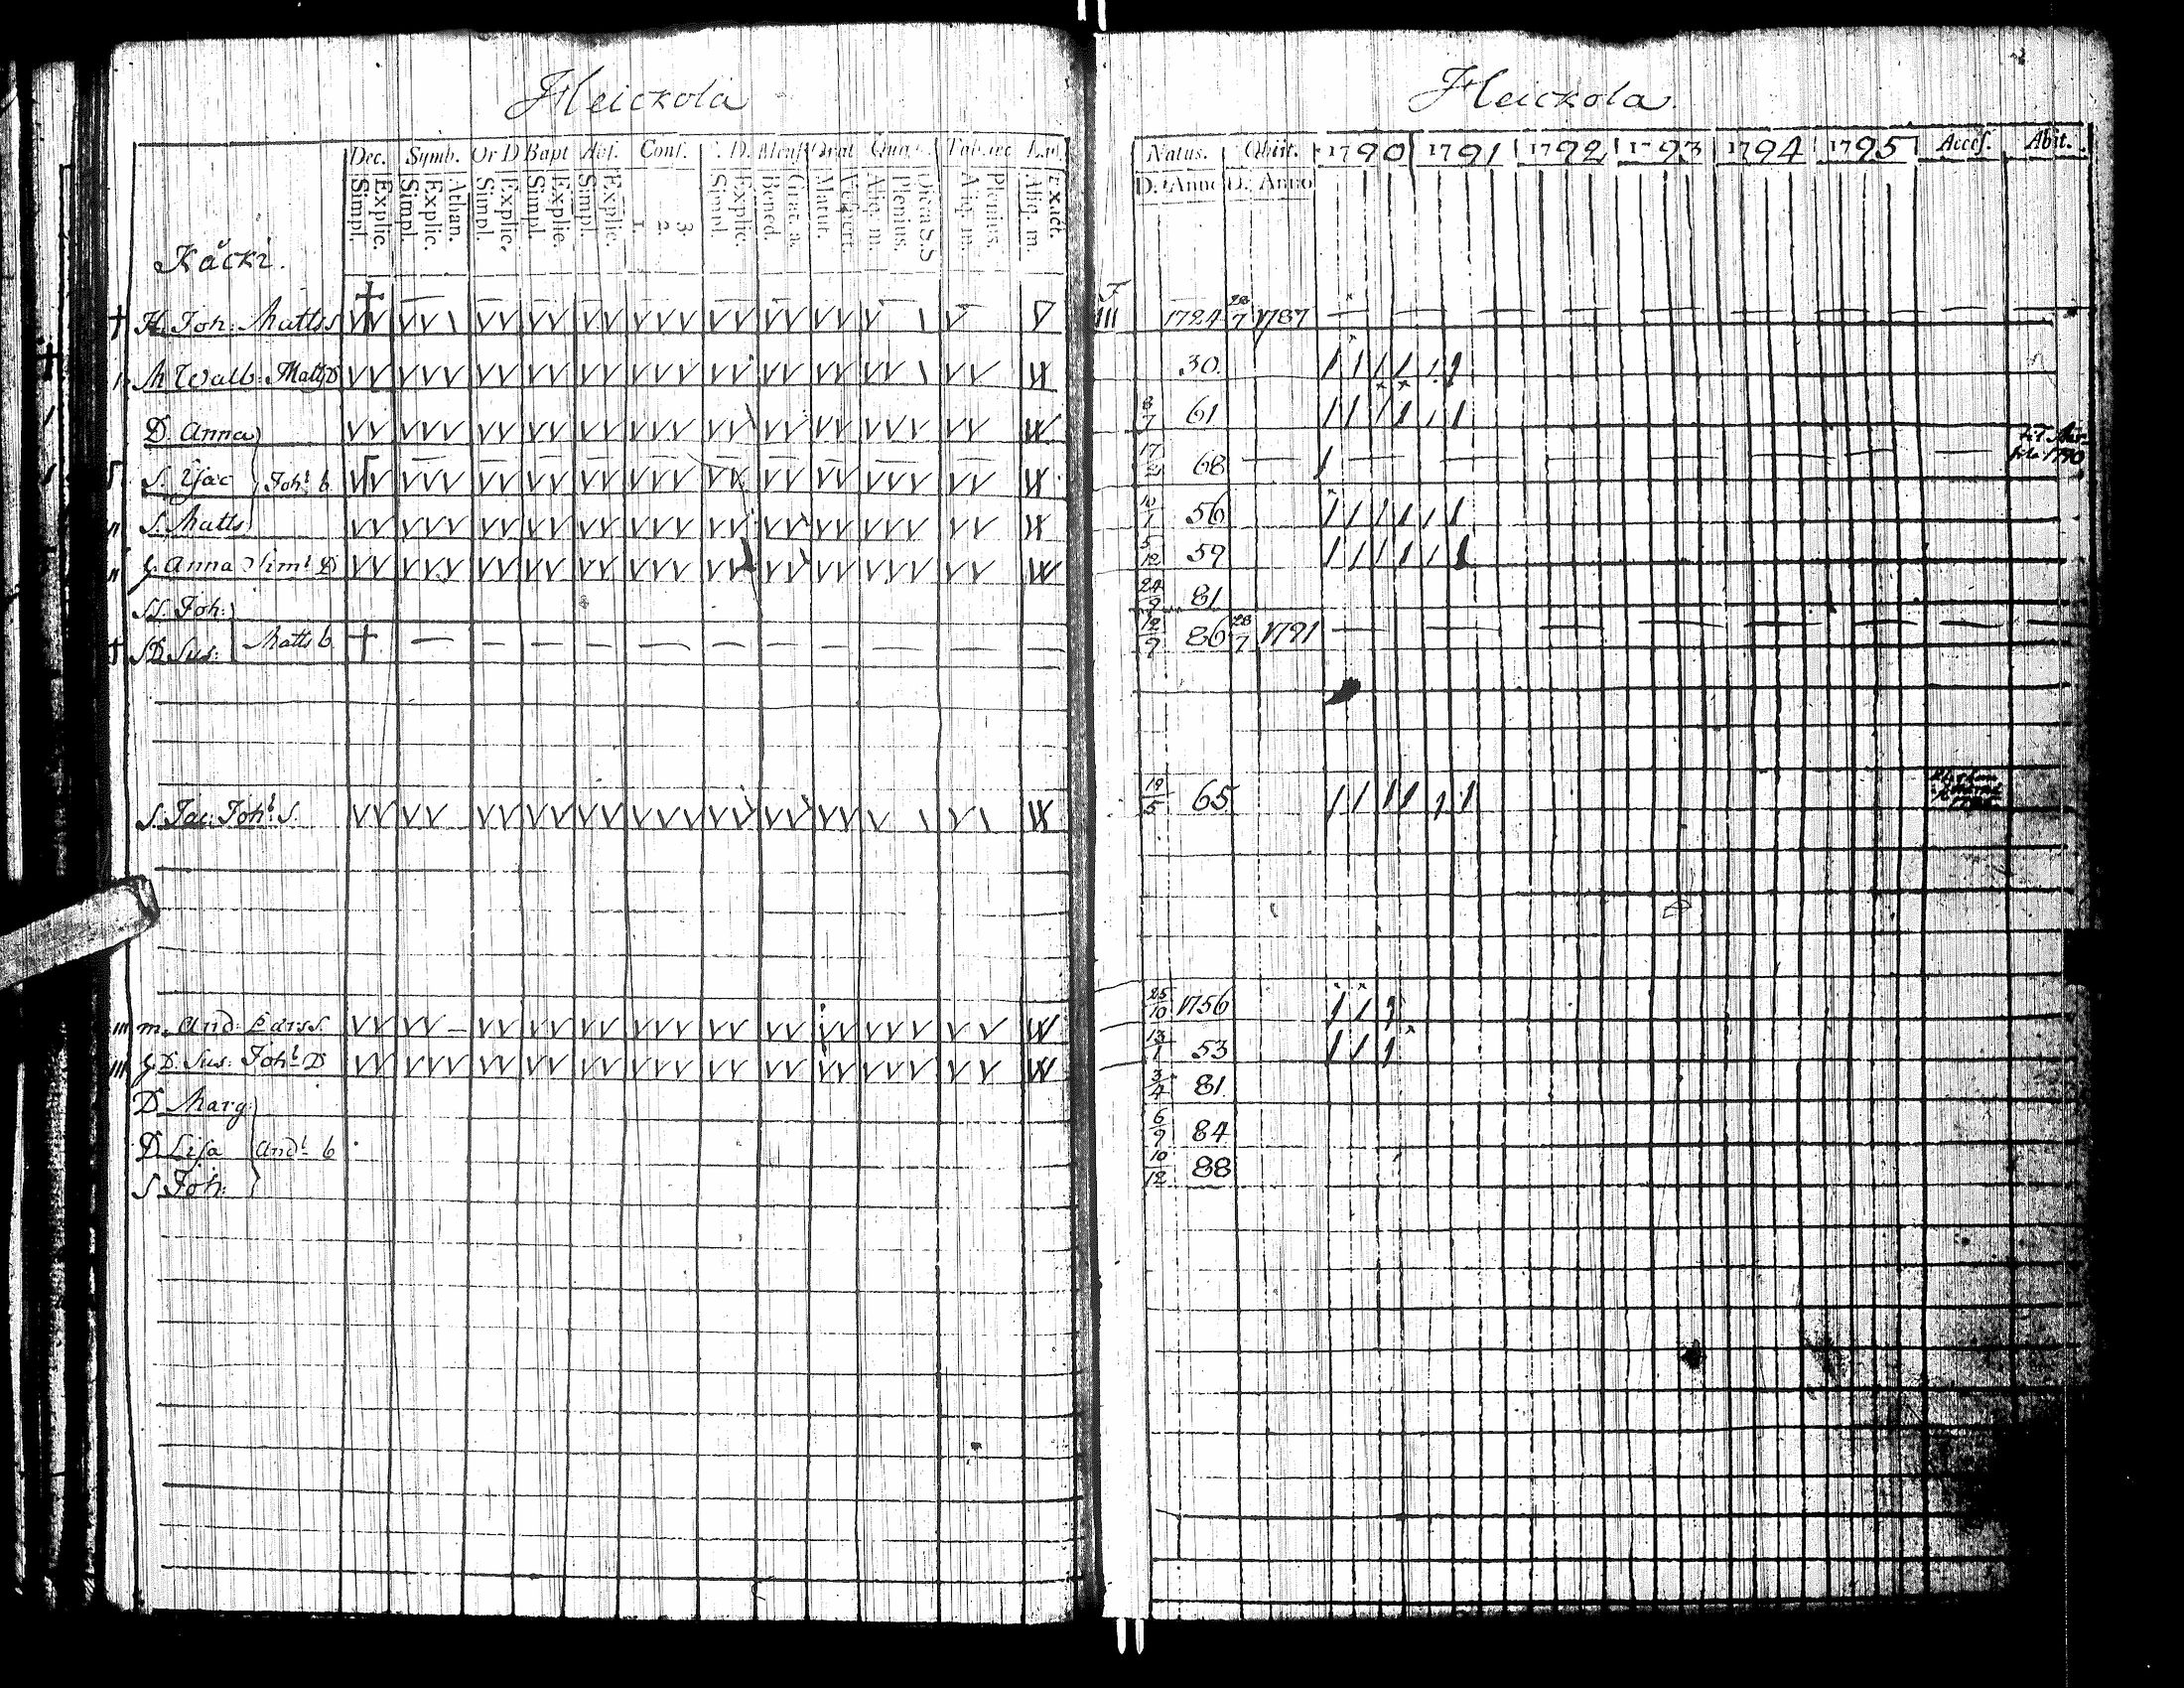 Heickola
Dec. Symb. Or D Bapt Abs. Conf. C. D. Mens Orat Quæs.
Simpl. Explic. Simpl. Explic. Athan. Simpl. Explic. Simpl. Explic. Simpl. Explic. 1 2. 3 Simpl. Explic. Bened. Grat. a. Matut. Vespert. Aliq. m. Plenius. Dicta S.S Aliq. m. Plenius. Aliq. m. Exact.
Kåcki.
H. Joh: Matts s
M Walb: Matts D
D. Anna
S. Isac Joh: b.
S. Matts
H. Anna Sim: D
SS. Joh:
SD. Sus: Matts b
S. Jac: Joh: S.
m. And: Larss.
H. D. Sus: Joh: D
D. Marg:
D. Lisa And: b
S Joh:
Heickola
Natus. Obiit. 1790 1791 1792 1793 1794 1795 Access. Abit.
D. Anno D. Anno
1724 28/7 1787
30.
8/7 61
17/2 68 1790
10/1 56
5/12 59
24/9 81
12/9 86 28/7 1791
19/5 65
25/10 1756
13/1 53
3/4 81.
6/9 84
10/12 88